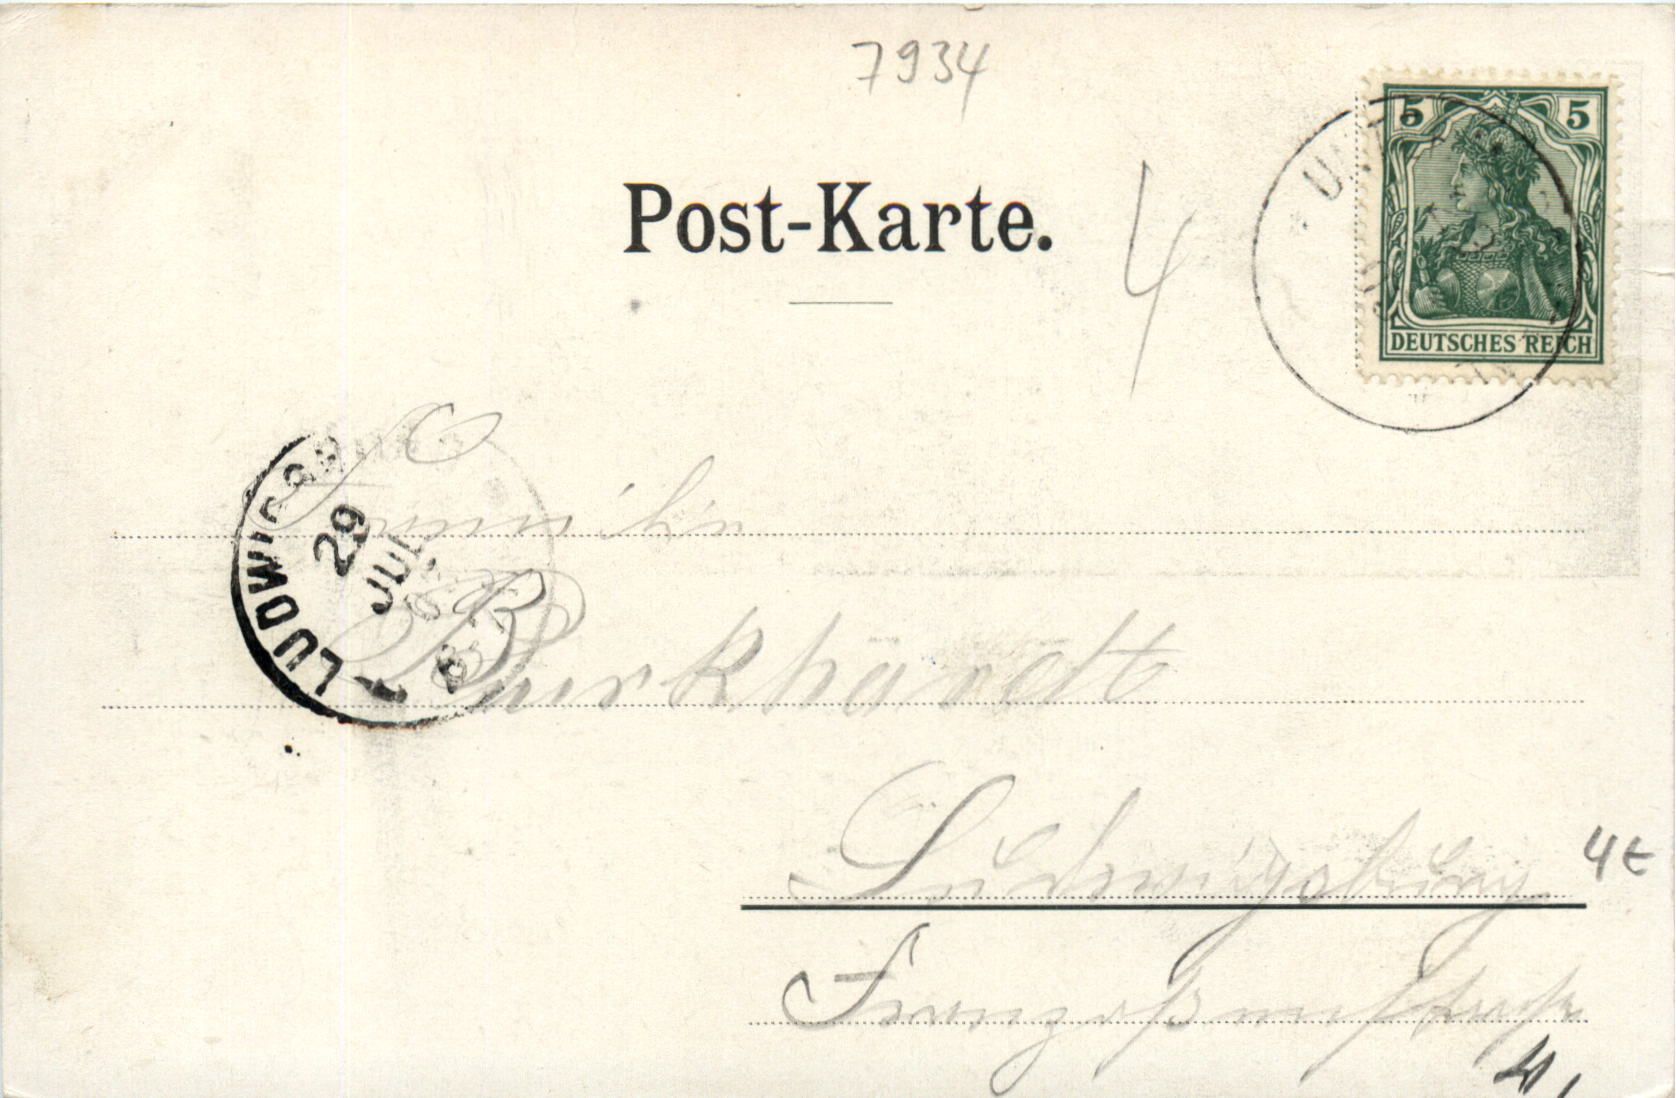 7934
Post-Karte.
4
5 5
DEUTSCHES REICH
LUDWIGSB
29
JUL
Familie
Burkhardt
Ludwigsburg
4 €
4,